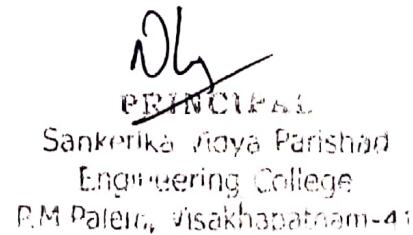 PRINCIPAL
Sanketika Vidya Parishad
Engineering College
P.M Palem, Visakhapatnam-41